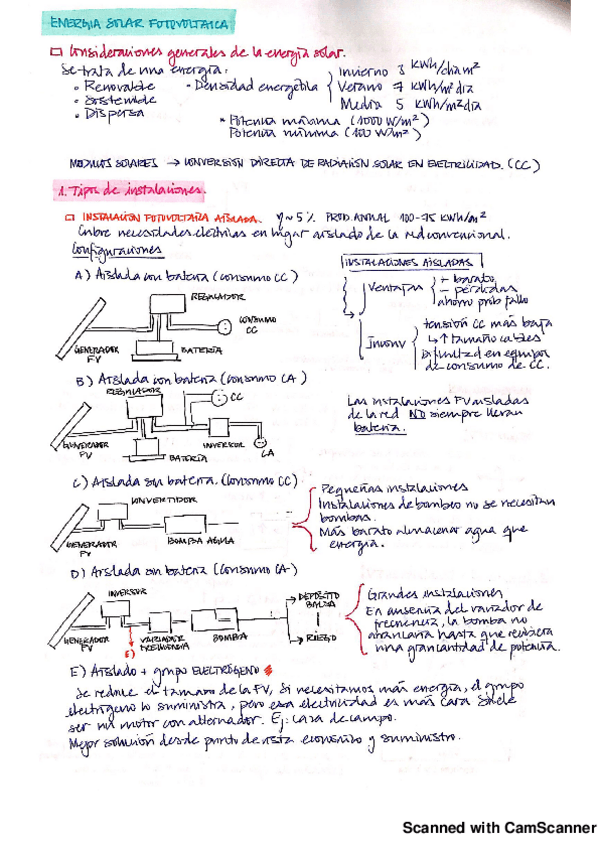 ENERGIA SOLAR FOTOVOLTAICA
Consideraciones generales de la energía solar.
Se trata de una energía:
• Renovable
• Sostenible
• Dispersa
• Densidad energética
Invierno 3 KWh/día m²
Verano 7 KWh/m² día
Media 5 KWh/m² día
• Potencia máxima (1000 W/m²)
Potencia mínima (100 W/m²)
MODULOS SOLARES → CONVERSIÓN DIRECTA DE RADIACIÓN SOLAR EN ELECTRICIDAD. (CC)
1. Tipos de instalaciones.
INSTALACIÓN FOTOVOLTAICA AISLADA. η ~ 5% PROD. ANUAL 100-75 KWh/m²
Cubre necesidades eléctricas en lugar aislado de la red convencional.
Configuraciones
INSTALACIONES AISLADAS
Ventajas
+ barato
- pérdidas
ahorro prob fallo
Inconv
tensión CC más baja
↳ ↑ tamaño cables
Dificultad en equipos
de consumo de CC.
A) Aislada con batería (consumo CC)
REGULADOR
CONSUMO
CC
GENERADOR
FV
BATERÍA
B) Aislada con batería (consumo CA)
REGULADOR
CC
GENERADOR
FV
BATERÍA
INVERSOR
CA
Las instalaciones FV aisladas
de la red NO siempre llevan
batería.
C) Aislada sin batería. (Consumo CC)
CONVERTIDOR
GENERADOR
FV
BOMBA AGUA
Pequeñas instalaciones
Instalaciones de bombeo no se necesitan
bombas.
Más barato almacenar agua que
energía.
D) Aislada sin batería (Consumo CA)
INVERSOR
GENERADOR
FV
E)
VARIADOR
FRECUENCIA
BOMBA
DEPÓSITO
BALSA
RIEGO
Grandes instalaciones
En ausencia del variador de
frecuencia, la bomba no
arrancaría hasta que recibiera
una gran cantidad de potencia.
E) Aislado + grupo ELECTRÓGENO
Se reduce el tamaño de la FV, si necesitamos más energía, el grupo
electrógeno lo suministra, pero esa electricidad es más cara. Suele
ser un motor con alternador. Ej: casa de campo.
Mejor solución desde punto de vista económico y suministro.
Scanned with CamScanner